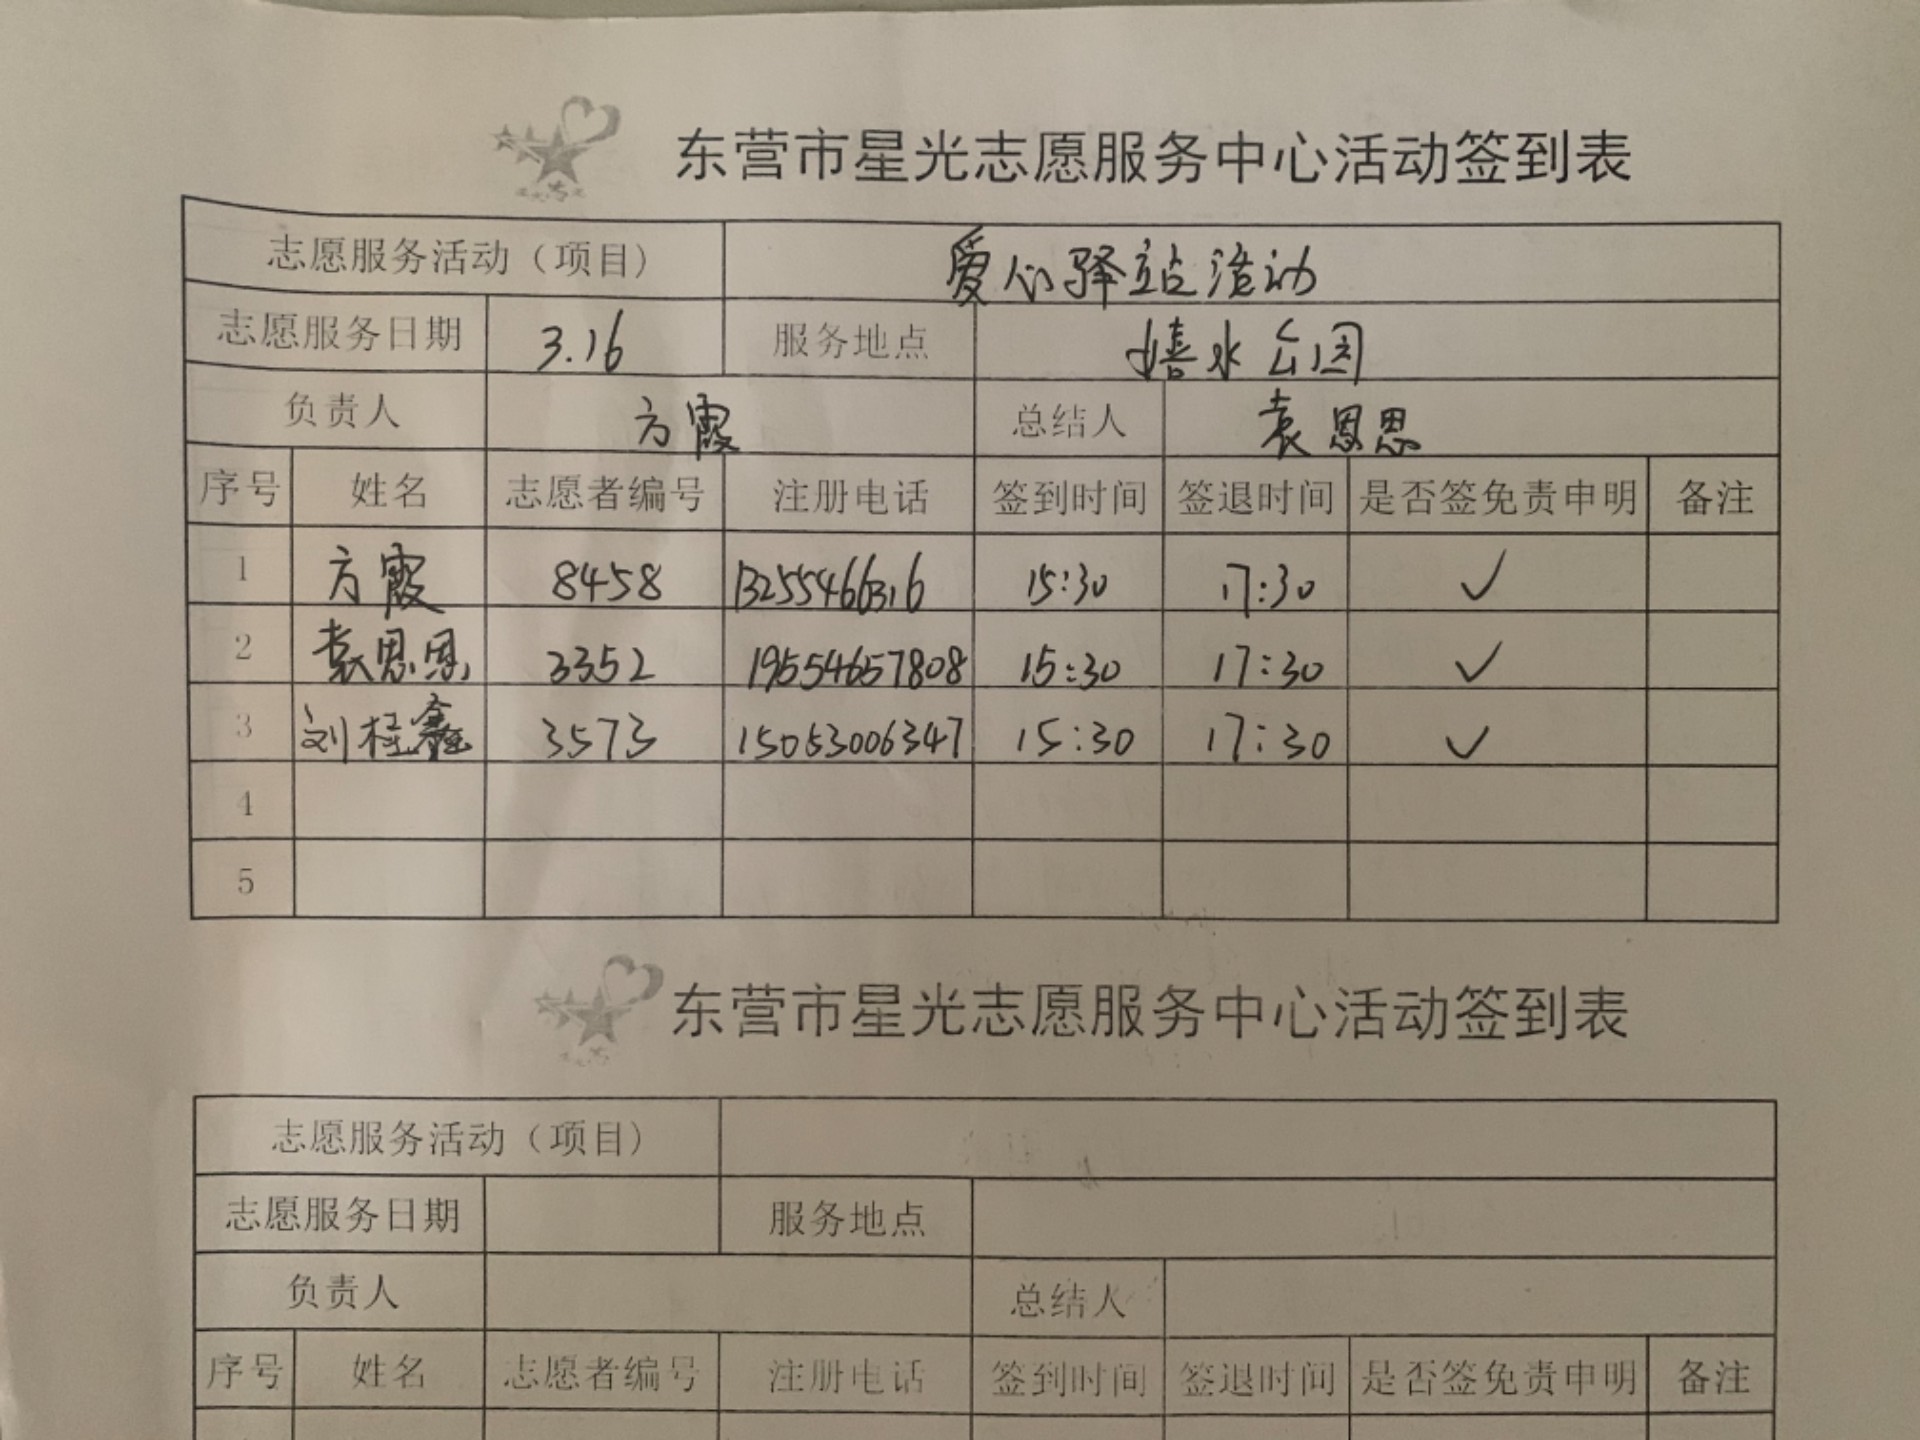 东营市星光志愿服务中心活动签到表
志愿服务活动（项目） 爱心驿站活动
志愿服务日期 3.16 服务地点 嬉水公园
负责人 方霞 总结人 袁恩恩
序号 姓名 志愿者编号 注册电话 签到时间 签退时间 是否签免责申明 备注
1 方霞 8458 13255466316 15:30 17:30 ✓
2 袁恩恩 3352 19554657808 15:30 17:30 ✓
3 刘桂鑫 3573 15053006347 15:30 17:30 ✓
4
5
东营市星光志愿服务中心活动签到表
志愿服务活动（项目）
志愿服务日期 服务地点
负责人 总结人
序号 姓名 志愿者编号 注册电话 签到时间 签退时间 是否签免责申明 备注